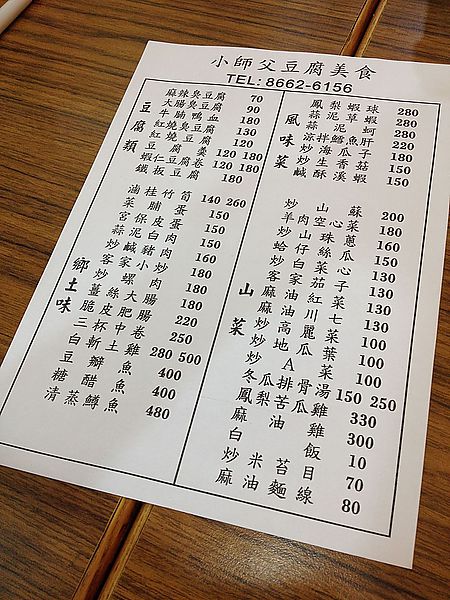 小師父豆腐美食
TEL: 8662-6156
豆腐類
麻辣臭豆腐 70
大腸臭豆腐 90
鴨血 180
紅燒臭豆腐 130
紅燒豆腐 120
豆腐羹 120 180
豆腐卷 120 180
蝦仁豆腐
鐵板豆腐 180
鄉土味
滷桂竹筍 140 260
菜脯蛋 150
宮保皮蛋 150
蒜泥白肉 150
炒鹹豬肉 160
客家小炒 180
炒螺肉 180
薑絲大腸 180
脆皮肥腸 220
三杯中卷 250
白斬土雞 280 500
豆瓣魚 400
糖醋魚 400
清蒸鱒魚 480
風味菜
鳳梨蝦球 280
蒜泥草蝦 280
蒜泥蚵 220
涼拌鱈魚肝 180
炒海瓜子 150
炒生香菇
鹹酥溪蝦 150
山菜
炒山蘇 200
羊肉空心菜 180
炒山珠蔥 160
蛤仔絲瓜 150
炒白菜心 130
客家茄子 130
麻油紅菜 130
麻油川七 100
炒高麗菜 100
炒地瓜葉 100
炒A菜 100
冬瓜排骨湯 150 250
鳳梨苦瓜雞 330
麻油雞 300
白飯 10
炒米苔目 70
麻油麵線 80